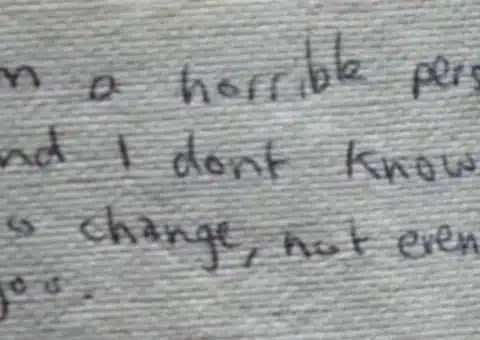 m a horrible pers
nd I dont know
o change, not even
you.